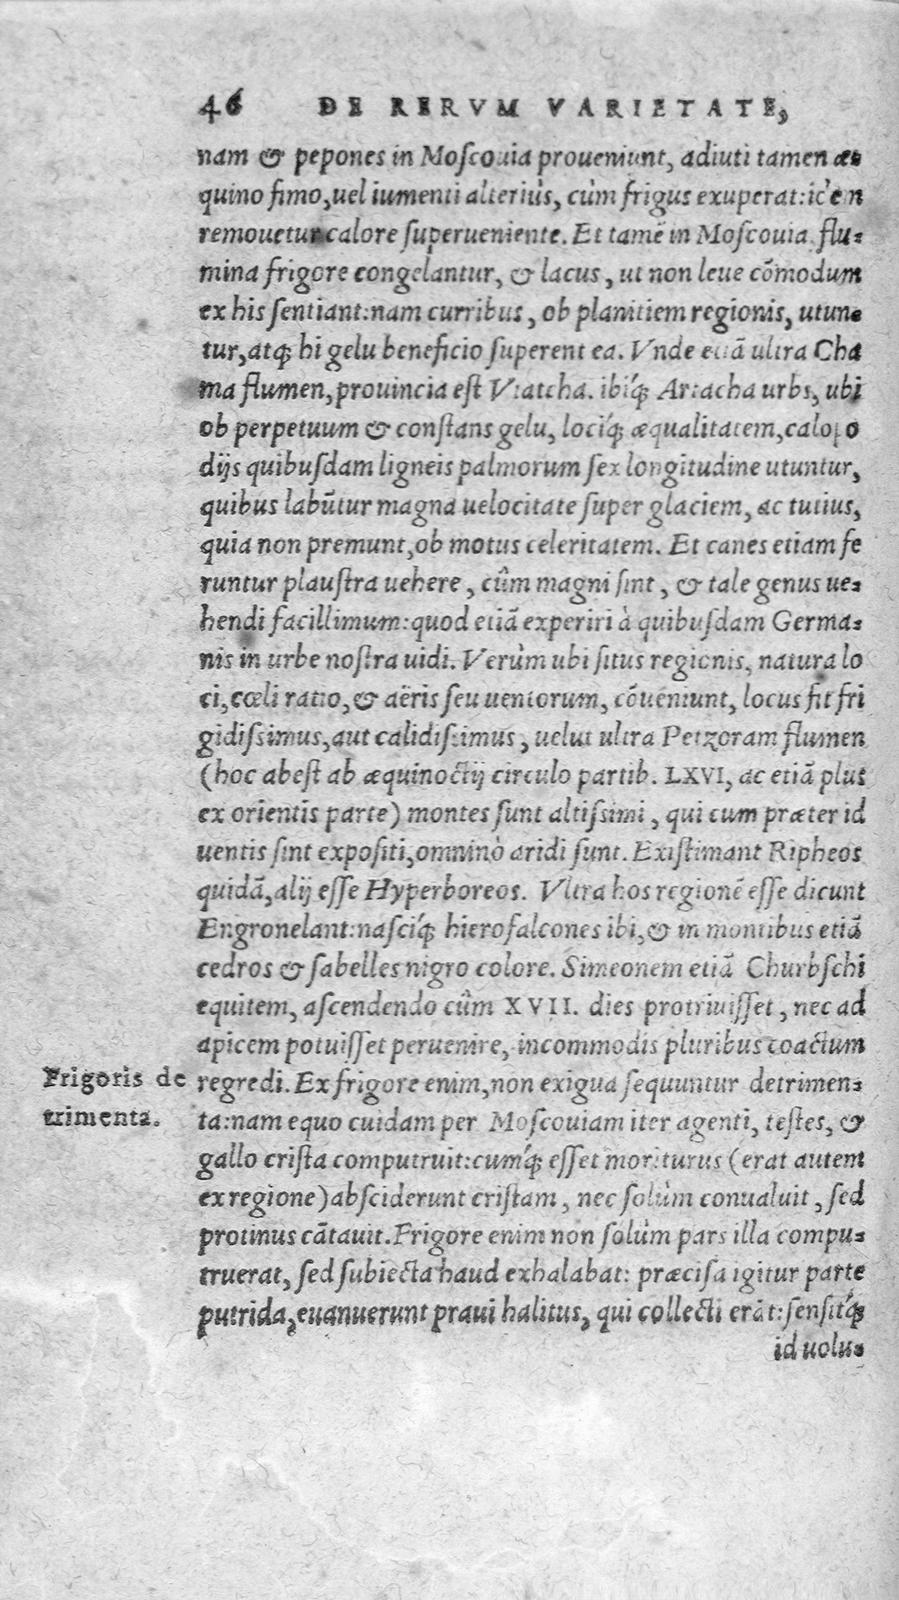 46 DE RERVM VARIETATE,
nam & pepones in Moſcouia proueniunt, adiuti tamen æ-
quino fimo, uel iumenti alteriùs, cùm frigus exuperat:
remouetur calore ſuperueniente. Et tamẽ in Moſcouia flu-
mina frigore congelantur, & lacus, ut non leue cõmodum
ex his ſentiant: nam curribus, ob planitiem regionis, utun-
tur, atq́; hi gelu beneficio ſuperent ea. Vnde etiã ultra Cha
ma flumen, prouincia eſt Viatcha. ibiq́; urbs, ubi
ob perpetuum & conſtans gelu, lociq́; æqualitatem, calopo
dijs quibuſdam ligneis palmorum ſex longitudine utuntur,
quibus labũtur magna uelocitate ſuper glaciem, ac tutius,
quia non premunt, ob motus celeritatem. Et canes etiam fe
runtur plauſtra uehere, cûm magni ſint, & tale genus ue-
hendi facillimum: quod etiã experiri à quibuſdam Germa-
nis in urbe noſtra uidi. Verùm ubi ſitus regionis, natura lo
ci, cœli ratio, & aëris ſeu uentorum, cõueniunt, locus fit fri
gidiſsimus, aut calidiſsimus, uelut ultra Petzoram flumen
(hoc abeſt ab æquinoctij circulo partib. LXVI, ac etiã plus
ex orientis parte) montes ſunt altiſsimi, qui cum præter id
uentis ſint expoſiti, omninò aridi ſunt. Exiſtimant Ripheos
quidã, alij eſſe Hyperboreos. Vltra hos regionẽ eſſe dicunt
Engronelant: naſciq́; hierofalcones ibi, & in montibus etiã
cedros & ſabelles nigro colore. Simeonem etiã Churbſchi
equitem, aſcendendo cûm XVII. dies protriuiſſet, nec ad
apicem potuiſſet peruenire, incommodis pluribus coactum
Frigoris de regredi. Ex frigore enim, non exigua ſequuntur detrimen-
trimenta. ta: nam equo cuidam per Moſcouiam iter agenti, teſtes, &
gallo criſta computruit: cumq́; eſſet moriturus (erat autem
ex regione) abſciderunt criſtam, nec ſolùm conualuit, ſed
protinus cãtauit. Frigore enim non ſolùm pars illa compu-
truerat, ſed ſubiecta haud exhalabat: præciſa igitur parte
putrida, euanuerunt praui halitus, qui collecti erãt: ſenſitq́;
id uolu-